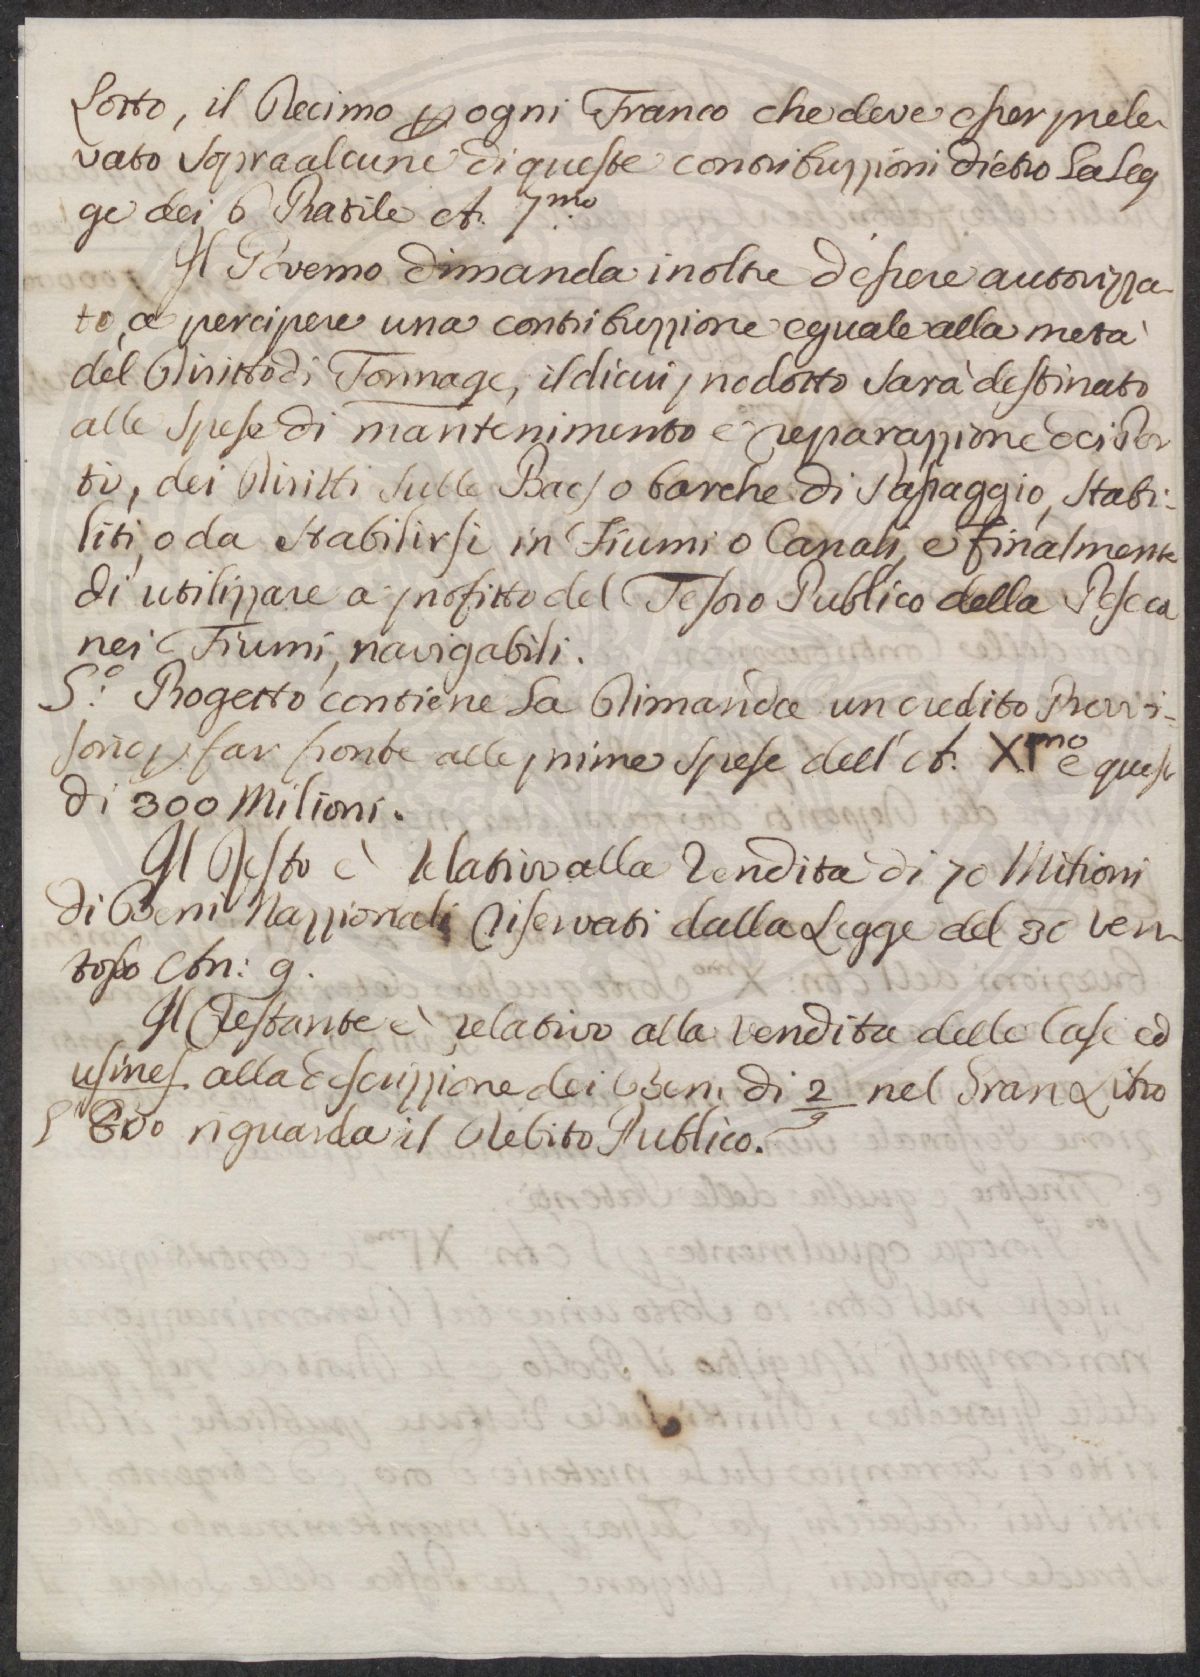 Lotto, il Decimo p ogni Franco che deve esser prele-
vato sopra alcune di queste contribuzzioni dietro la Leg
ge dei 6 Pratile A. 7.mo
Il Governo dimanda inoltre d'essere autorizza-
to, a percipere una contribuzzione eguale alla metà
del Diritto di Tonnage, il di cui prodotto sarà destinato
alle spese di mantenimento e reparazzione dei Por
ti, dei Diritti sulle Bacs o barche di passaggio, stabi-
liti, o da stabilirsi in Fiumi o Canali, e finalmente
di utilizzare a profitto del Tesoro Publico della Pesca
nei Fiumi, navigabili.
5.° Progetto contiene la Dimanda un credito Provvi-
sorio p far fronte alle prime spese dell'A. XI.mo e quest
di 300 Milioni.
Il Resto è relativo alla Vendita di 70 Milioni
di Beni Nazzionali riservati dalla Legge del 30 Ven-
toso An: 9.
Il Restante è relativo alla vendita delle Case ed
usines alla descrizzione dei Beni di 2 nel Gran Libro
riguarda il Debito Publico.